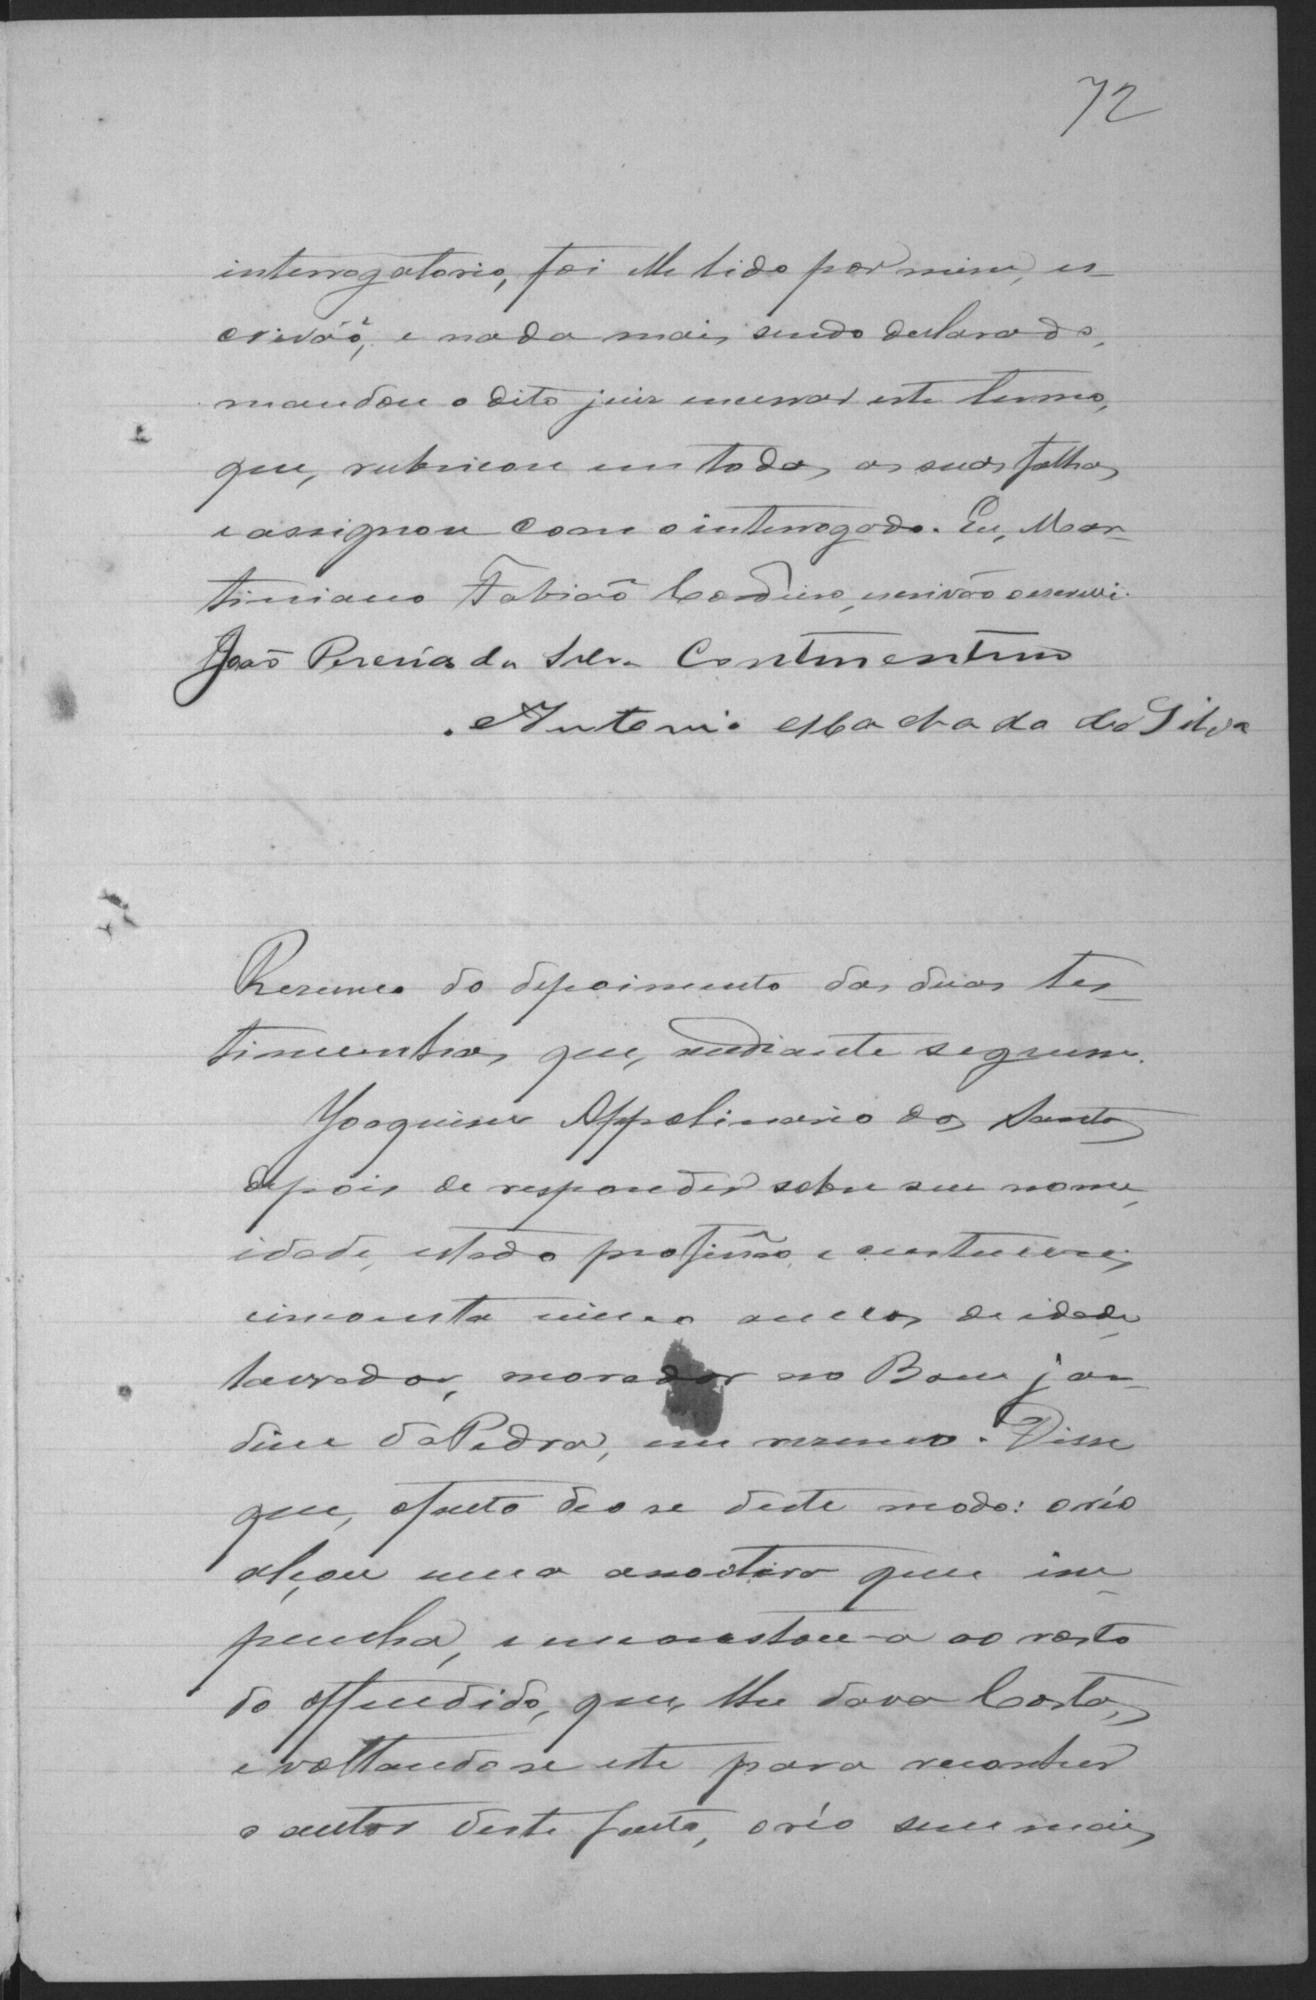 72
interrogatorio, foi lhe lido por mim, es-
crivão, e nada mais sendo declarado,
mandou o dito juiz encerrar este termo,
que, rubricou em todas as suas folhas
e assignou com o interrogado. Eu, Mar-
tiniano Fabião Cardoso, escrivão o escrevi.
João Pereira da Silva Continentino
Antonio Machado da Silva
Resumo do depoimento das duas tes-
timunhas, que, mediante seguem.
Joaquim Appolinario dos Santos
depois de responder sobre seu nome,
idade, estado profissão, e custumes,
cincoenta cinco annos de idade,
lavrador, morador no Bom jar-
dim da Pedra, em resumo. Disse
que, o facto deo se deste modo: o réo
alçou uma que em-
punha, e encostou-a ao rosto
do offendido, que, lhe dava Costas,
e voltando se este para reconhecer
o autor deste facto, o réo sem mais